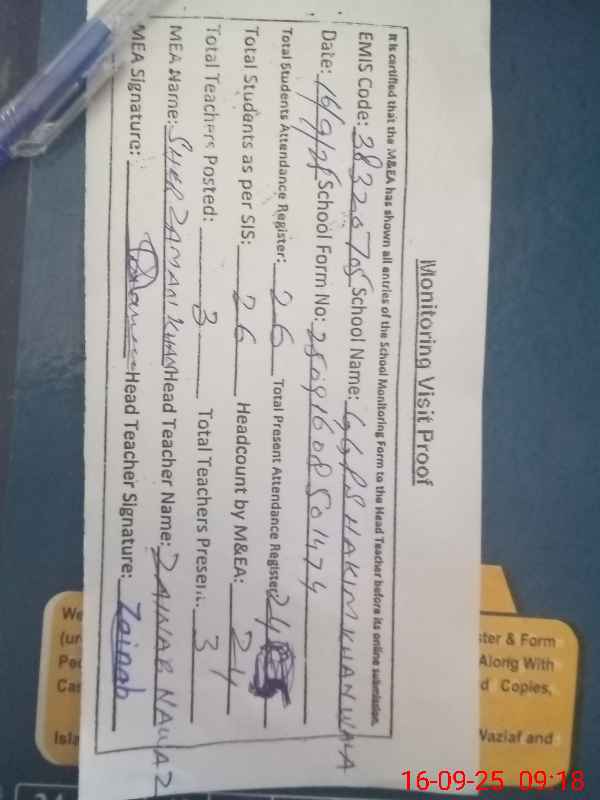 Monitoring Visit Proof
It is certified that the M&EA has shown all entries of the School Monitoring Form to the Head Teacher before its online submission.
EMIS Code: 38320705 School Name: GGPS HAKIM KHAN WALA
Date: 16/9/25 School Form No: 25091608501474
Total Students Attendance Register: 26 Total Present Attendance Register 24
Total Students as per SIS: 26 Headcount by M&EA: 24
Total Teachers Posted: 3 Total Teachers Present: 3
MEA Name: SHER ZAMAN KHAN Head Teacher Name: ZAINAB NAWAZ
MEA Signature: Head Teacher Signature: Zainab
We
(ur
Cas
Isla
ster & Form
Along With
d Copies,
Vaziaf and
16-09-25 09:18